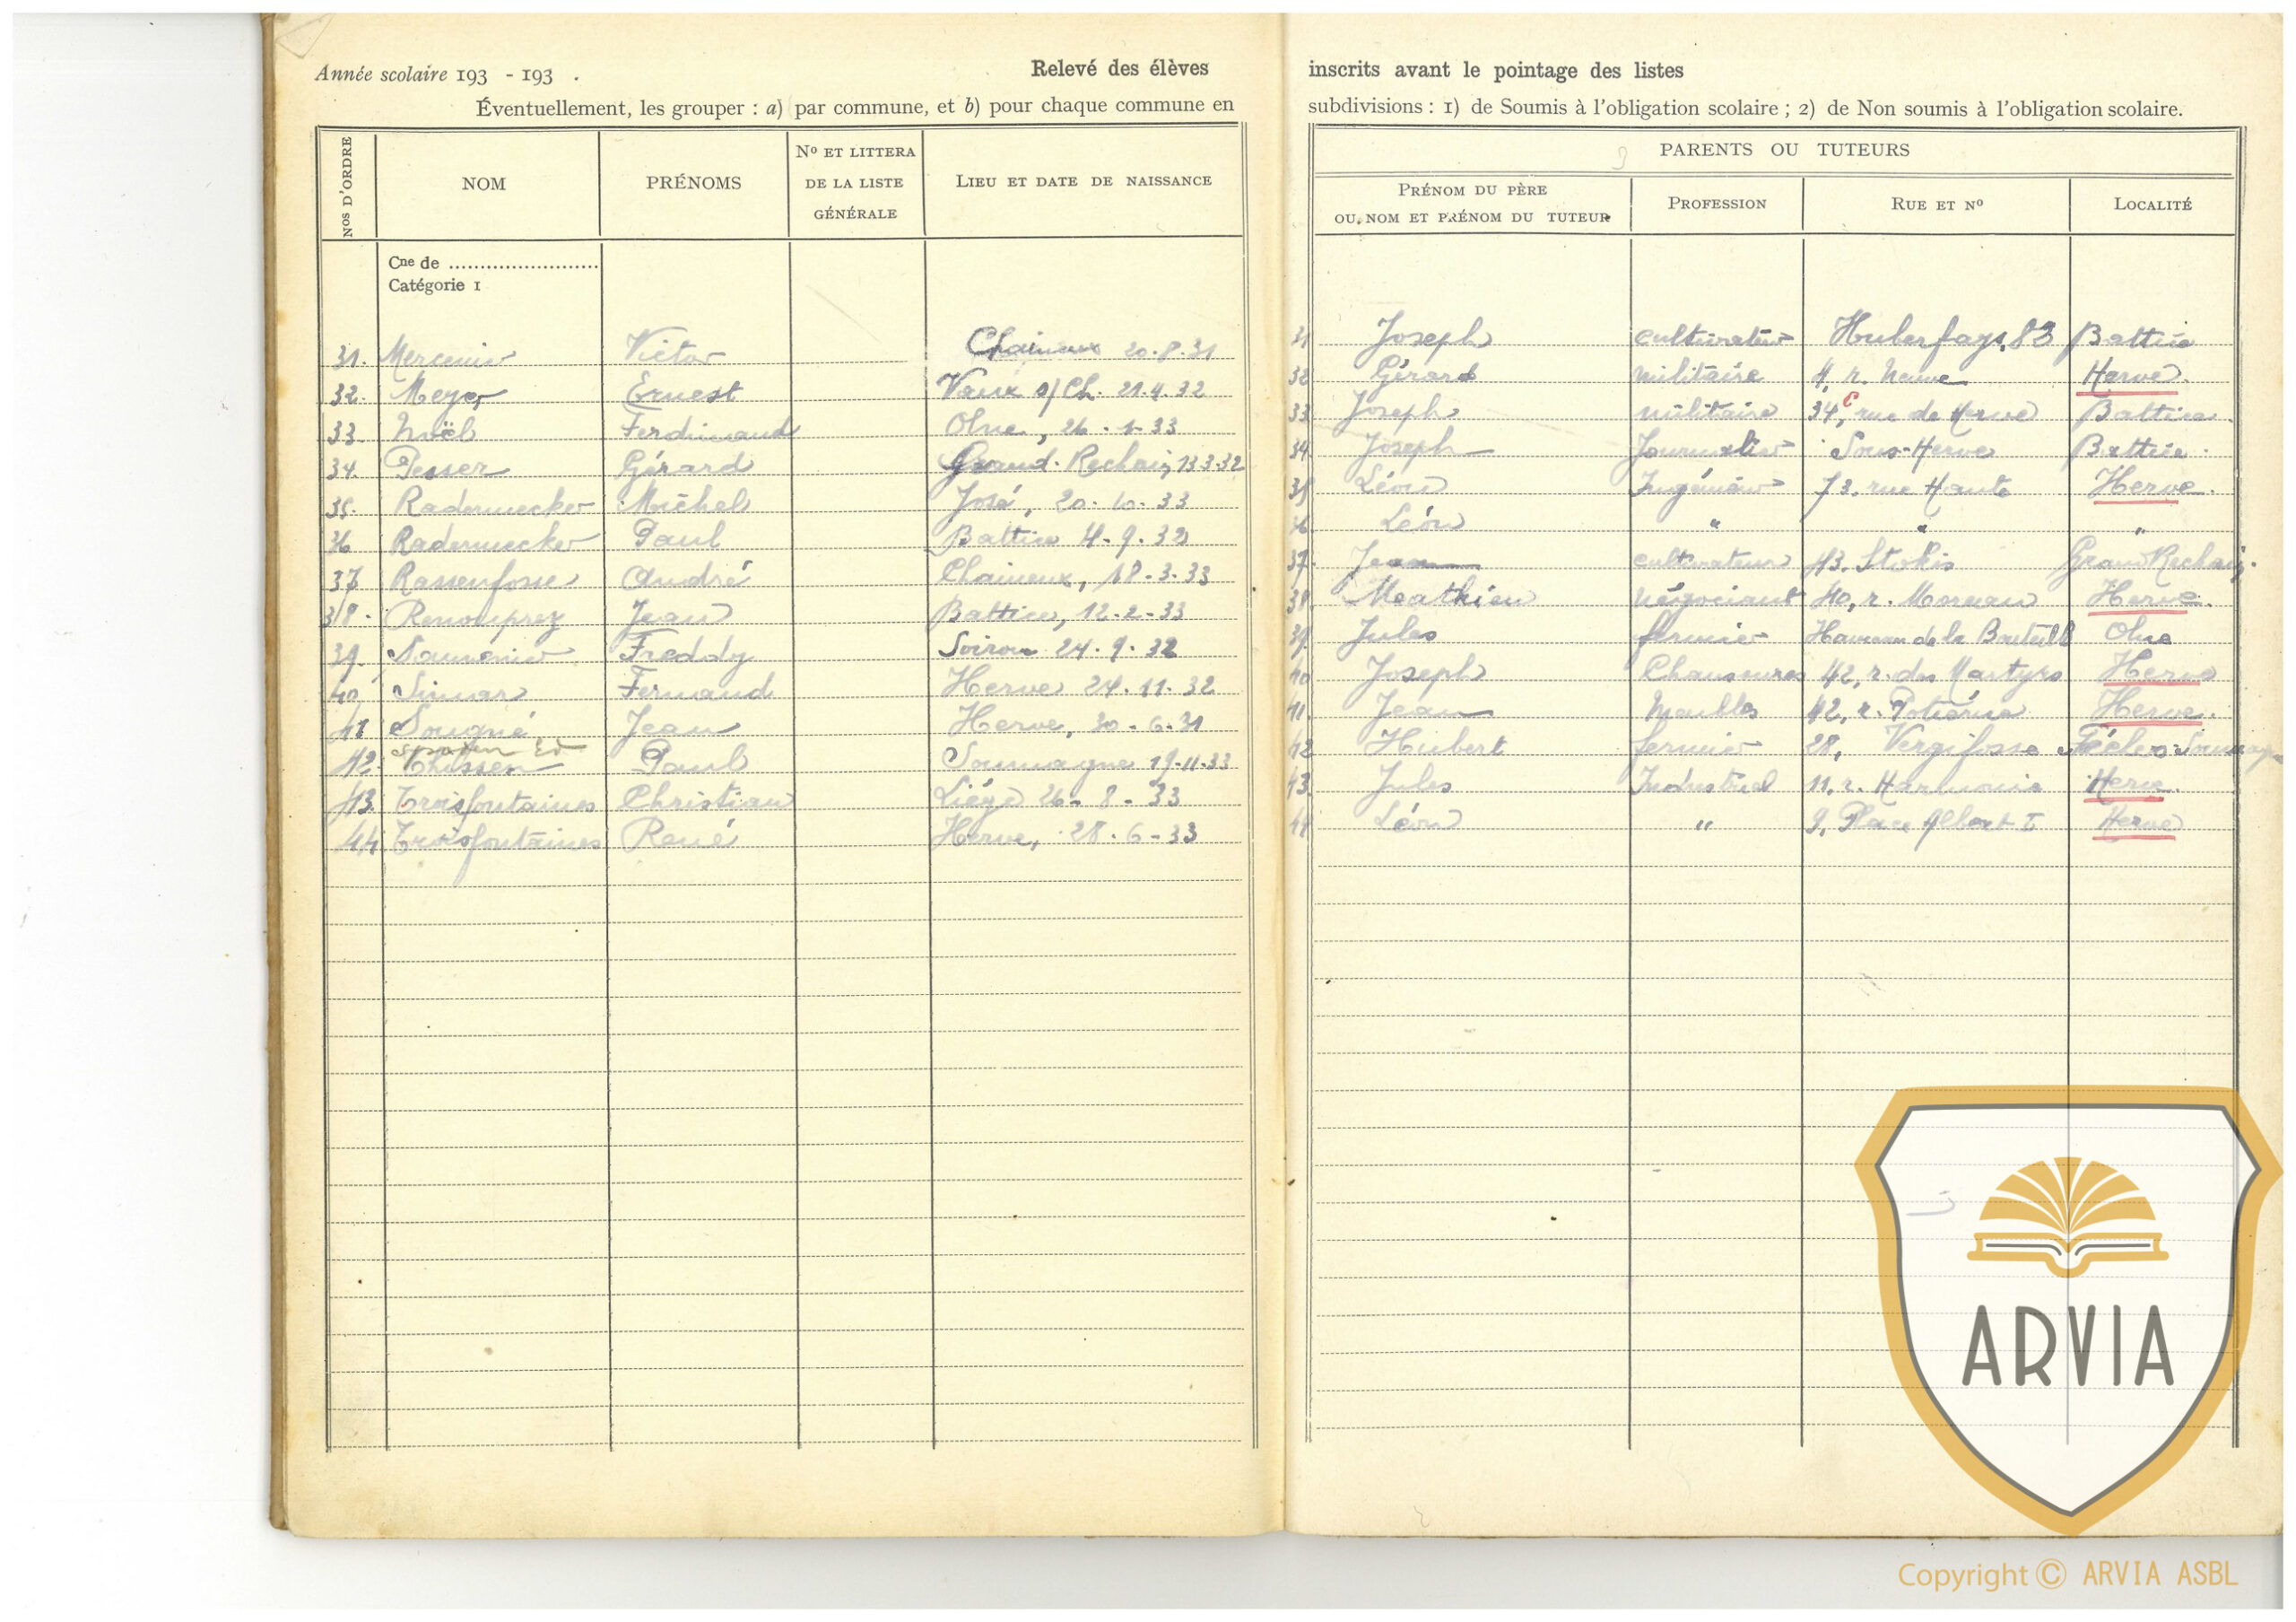 Année scolaire 193 - 193 .
Relevé des élèves
Éventuellement, les grouper : a) par commune, et b) pour chaque commune en
NOS D'ORDRE
NOM
PRÉNOMS
No ET LITTERA
DE LA LISTE
GÉNÉRALE
LIEU ET DATE DE NAISSANCE
Cne de ........................
Catégorie 1
31. Mercenier Victor Chaineux 20.8.31
32. Meyer Ernest Vaux s/Ch. 21.4.32
33. Noël Ferdinand Olne, 26.1.33
34. Pesser Gérard Grand-Rechain, 13.3.32
35. Radermecker Michel José, 20.10.33
36 Radermecker Paul Battice 4-9.32
37 Rassenfosse André Chaineux, 18-3-33
38. Renouprez Jean Battice, 12-2-33
39. Freddy Soiron 24.9.32
40 Simar Fernand Herve 24.11.32
41 Sougné Jean Herve, 30-6-31
Spaden Ed
42. Thissen Paul Soumagne 19-11-33
43. Troisfontaines Christian Liège 26-8-33
44 Troisfontaines René Herve, 28.6-33
inscrits avant le pointage des listes
subdivisions : 1) de Soumis à l'obligation scolaire ; 2) de Non soumis à l'obligation scolaire.
PARENTS OU TUTEURS
PRÉNOM DU PÈRE
OU, NOM ET PRÉNOM DU TUTEUR
PROFESSION
RUE ET No
LOCALITÉ
31 Joseph cultivateur Huberfays, 83 Battice
32 Gérard militaire 4, r. Neuve Herve.
33 Joseph militaire 34c, rue de Herve Battice.
34 Joseph Journalier Sous-Herve Battice.
35 Léon Ingénieur 73, rue Haute Herve.
36 Léon " " "
37. Jean cultivateur 43. Stokis Grand Rechain.
38 Mathieu négociant 40, r. Moreau Herve.
39. Jules fermier Hameau de la Bouteille Olne
40 Joseph Chaussures 42, r. des Martyrs Herve
41. Jean Meubles 42, r. Potiérue Herve.
42 Hubert fermier 28, Vergifosse Soumagne
43. Jules Industriel 11, r. Harmonie Herve.
44 Léon " 9, Place Albert I Herve
ARVIA
Copyright © ARVIA ASBL